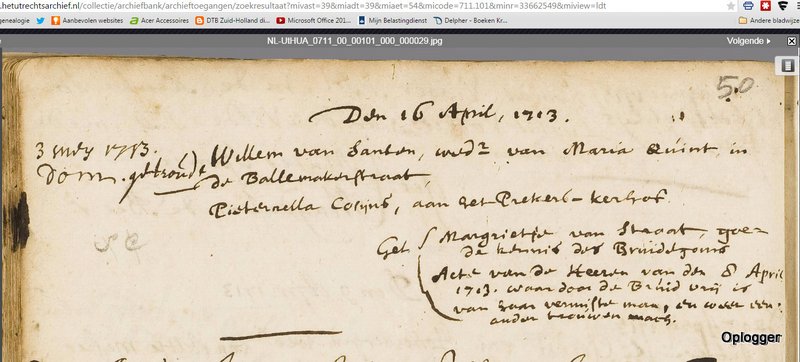 .hetutrechtsarchief.nl/collectie/archiefbank/archieftoegangen/zoekresultaat?mivast=39&miadt=39&miaet=54&micode=711.101&minr=33662549&miview=ldt
genealogie Aanbevolen websites Acer Accessoires DTB Zuid-Holland di... Microsoft Office 201... Mijn Belastingdienst Delpher - Boeken Kr... Andere bladwijzers
NL-UtHUA_0711_00_00101_000_000029.jpg Volgende
50
Den 16 April, 1713.
3 mey 1713.
Dom. getroude
Willem van Santen, wedr van Maria Quint, in
de Ballemakerstraat,
Pieternella Cosijns, aan het Prekers-kerhof.
Get
Margrietje van Straat, goe-
de kennis des Bruidegoms
Acte van de Heeren van den 8 April
1713. waar door de Bruid vrij is
van haar vermiste man, en weer een
ander trouwen mach.
Oplogger